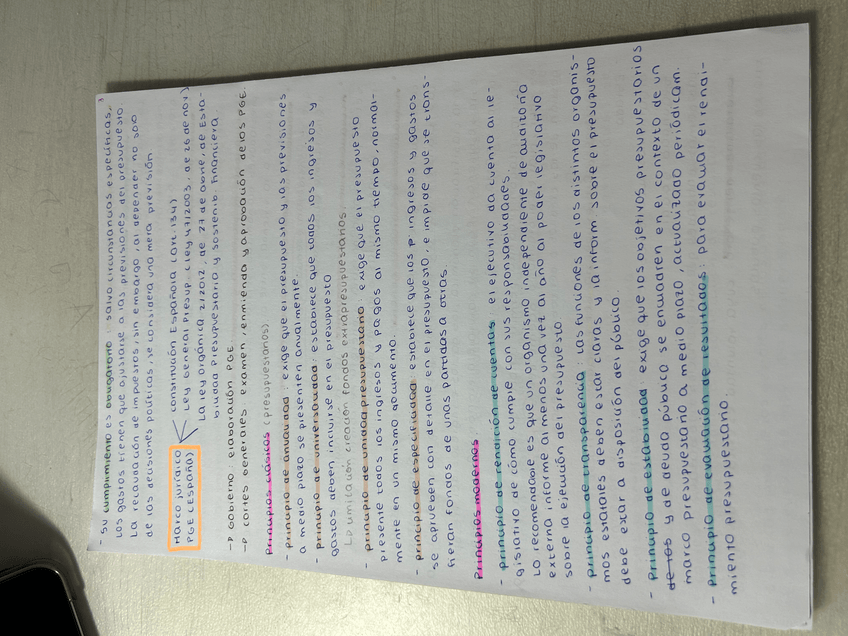 - Su cumplimiento es obligatorio: salvo circunstancias específicas,
los gastos tienen que ajustarse a las previsiones del presupuesto.
La recaudación de impuestos, sin embargo, al depender no solo
de las decisiones políticas, se considera una mera previsión
Marco jurídico
PGE (ESPAÑA)
constitución Española (art. 134)
Ley General presup. (Ley 47/2003, de 26 de nov)
La ley orgánica 2/2012, de 27 de abril, de Esta-
bilidad Presupuestaria y Sostenib. Financiera.
→ Gobierno: elaboración PGE
→ cortes Generales: examen, enmienda y aprobación de los PGE.
Principios clásicos (presupuestarios)
- Principio de anualidad: exige que el presupuesto y las previsiones
a medio plazo se presenten anualmente.
- Principio de universalidad: establece que todos los ingresos y
gastos deben incluirse en el presupuesto
↳ limitación creación fondos extrapresupuestarios.
- Principio de unidad presupuestaria: exige que el presupuesto
presente todos los ingresos y pagos al mismo tiempo, normal-
mente en un mismo documento.
- principio de especificidad: establece que los p ingresos y gastos
se aprueben con detalle en el presupuesto, e impide que se trans-
fieran fondos de unas partidas a otras.
Principios modernos
- principio de rendición de cuentas: el ejecutivo da cuenta al le-
gislativo de cómo cumple con sus responsabilidades.
Lo recomendable es que un organismo independiente de auditoría
externa informe al menos una vez al año al poder legislativo
sobre la ejecución del presupuesto
- Principio de transparencia: las funciones de los distintos organis-
mos estatales deben estar claras y la inform. sobre el presupuesto
debe estar a disposición del público.
- Principio de estabilidad: exige que los objetivos presupuestarios
de los y de deuda pública se encuadren en el contexto de un
marco presupuestario a medio plazo, actualizado periódicam.
- Principio de evaluación de resultados: para evaluar el rendi-
miento presupuestario.